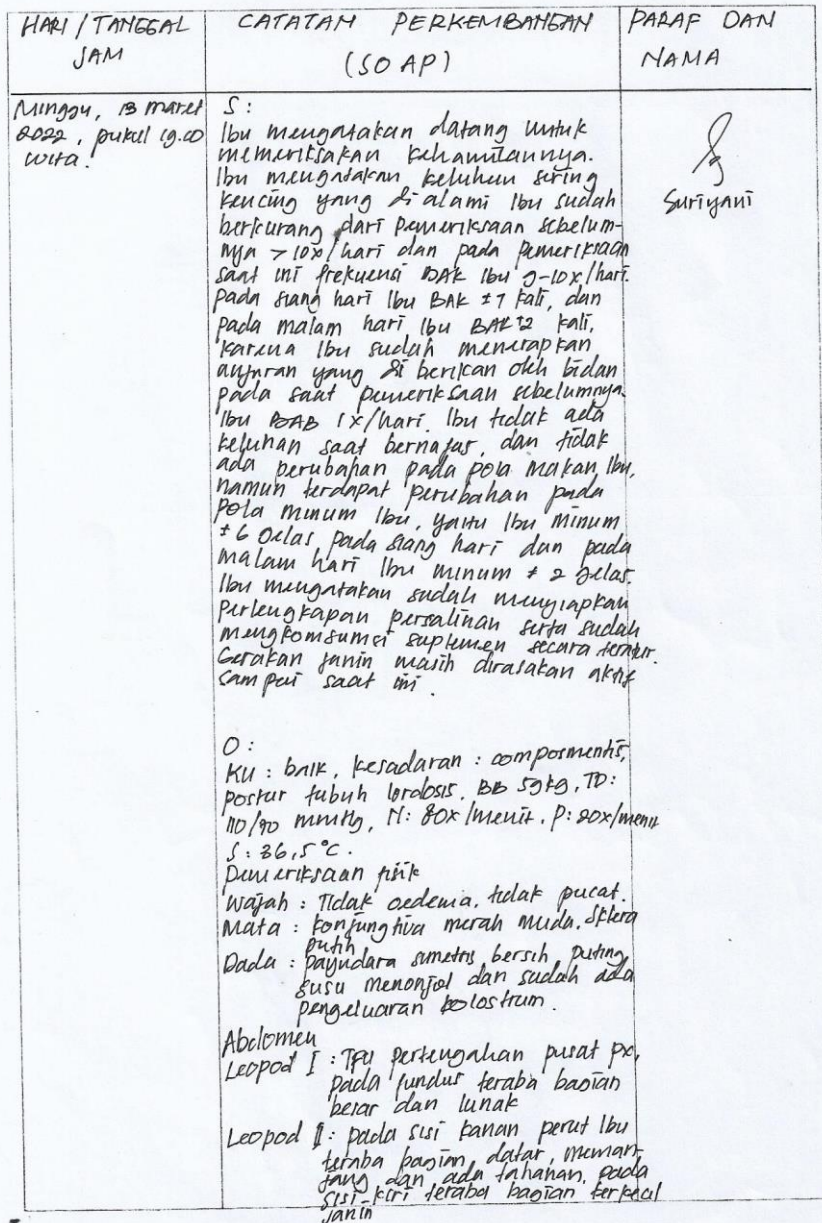 HARI / TANGGAL
JAM
CATATAN PERKEMBANGAN
(SOAP)
PARAF DAN
NAMA
Minggu, 13 maret
2022, pukul 19.00
wita.
S :
Ibu mengatakan datang untuk
memeriksakan kehamilannya.
Ibu mengatakan keluhan sering
kencing yang di alami Ibu sudah
berkurang dari pemeriksaan sebelum-
nya > 10x/hari dan pada pemeriksaan
saat ini frekuensi BAK Ibu 9-10x/hari.
pada siang hari Ibu BAK ± 7 kali, dan
pada malam hari Ibu BAK ± 2 kali,
karena Ibu sudah menerapkan
anjuran yang di berikan oleh bidan
pada saat pemeriksaan sebelumnya.
Ibu BAB 1x/hari. Ibu tidak ada
keluhan saat bernafas, dan tidak
ada perubahan pada pola makan Ibu,
namun terdapat perubahan pada
pola minum Ibu, yaitu Ibu minum
± 6 gelas pada siang hari dan pada
malam hari Ibu minum ± 2 gelas.
Ibu mengatakan sudah menyiapkan
perlengkapan persalinan serta sudah
mengkomsumsi suplemen secara teratur.
Gerakan janin masih dirasakan aktif
sampai saat ini.
Suriyani
O :
KU : baik, kesadaran : composmentis,
postur tubuh lordosis, BB 59kg, TD :
110/70 mmHg, N : 80x/menit, P : 20x/menit
S : 36,5 °C.
Pemeriksaan fisik
Wajah : Tidak oedema, tidak pucat.
Mata : konjungtiva merah muda, sklera
putih
Dada : payudara simetris bersih, puting
susu menonjol dan sudah ada
pengeluaran kolostrum.
Abdomen
Leopod I : TFU pertengahan pusat px,
pada fundus teraba bagian
besar dan lunak
Leopod II : pada sisi kanan perut Ibu
teraba bagian datar, meman-
jang dan ada tahanan, pada
sisi kiri teraba bagian terkecil
janin